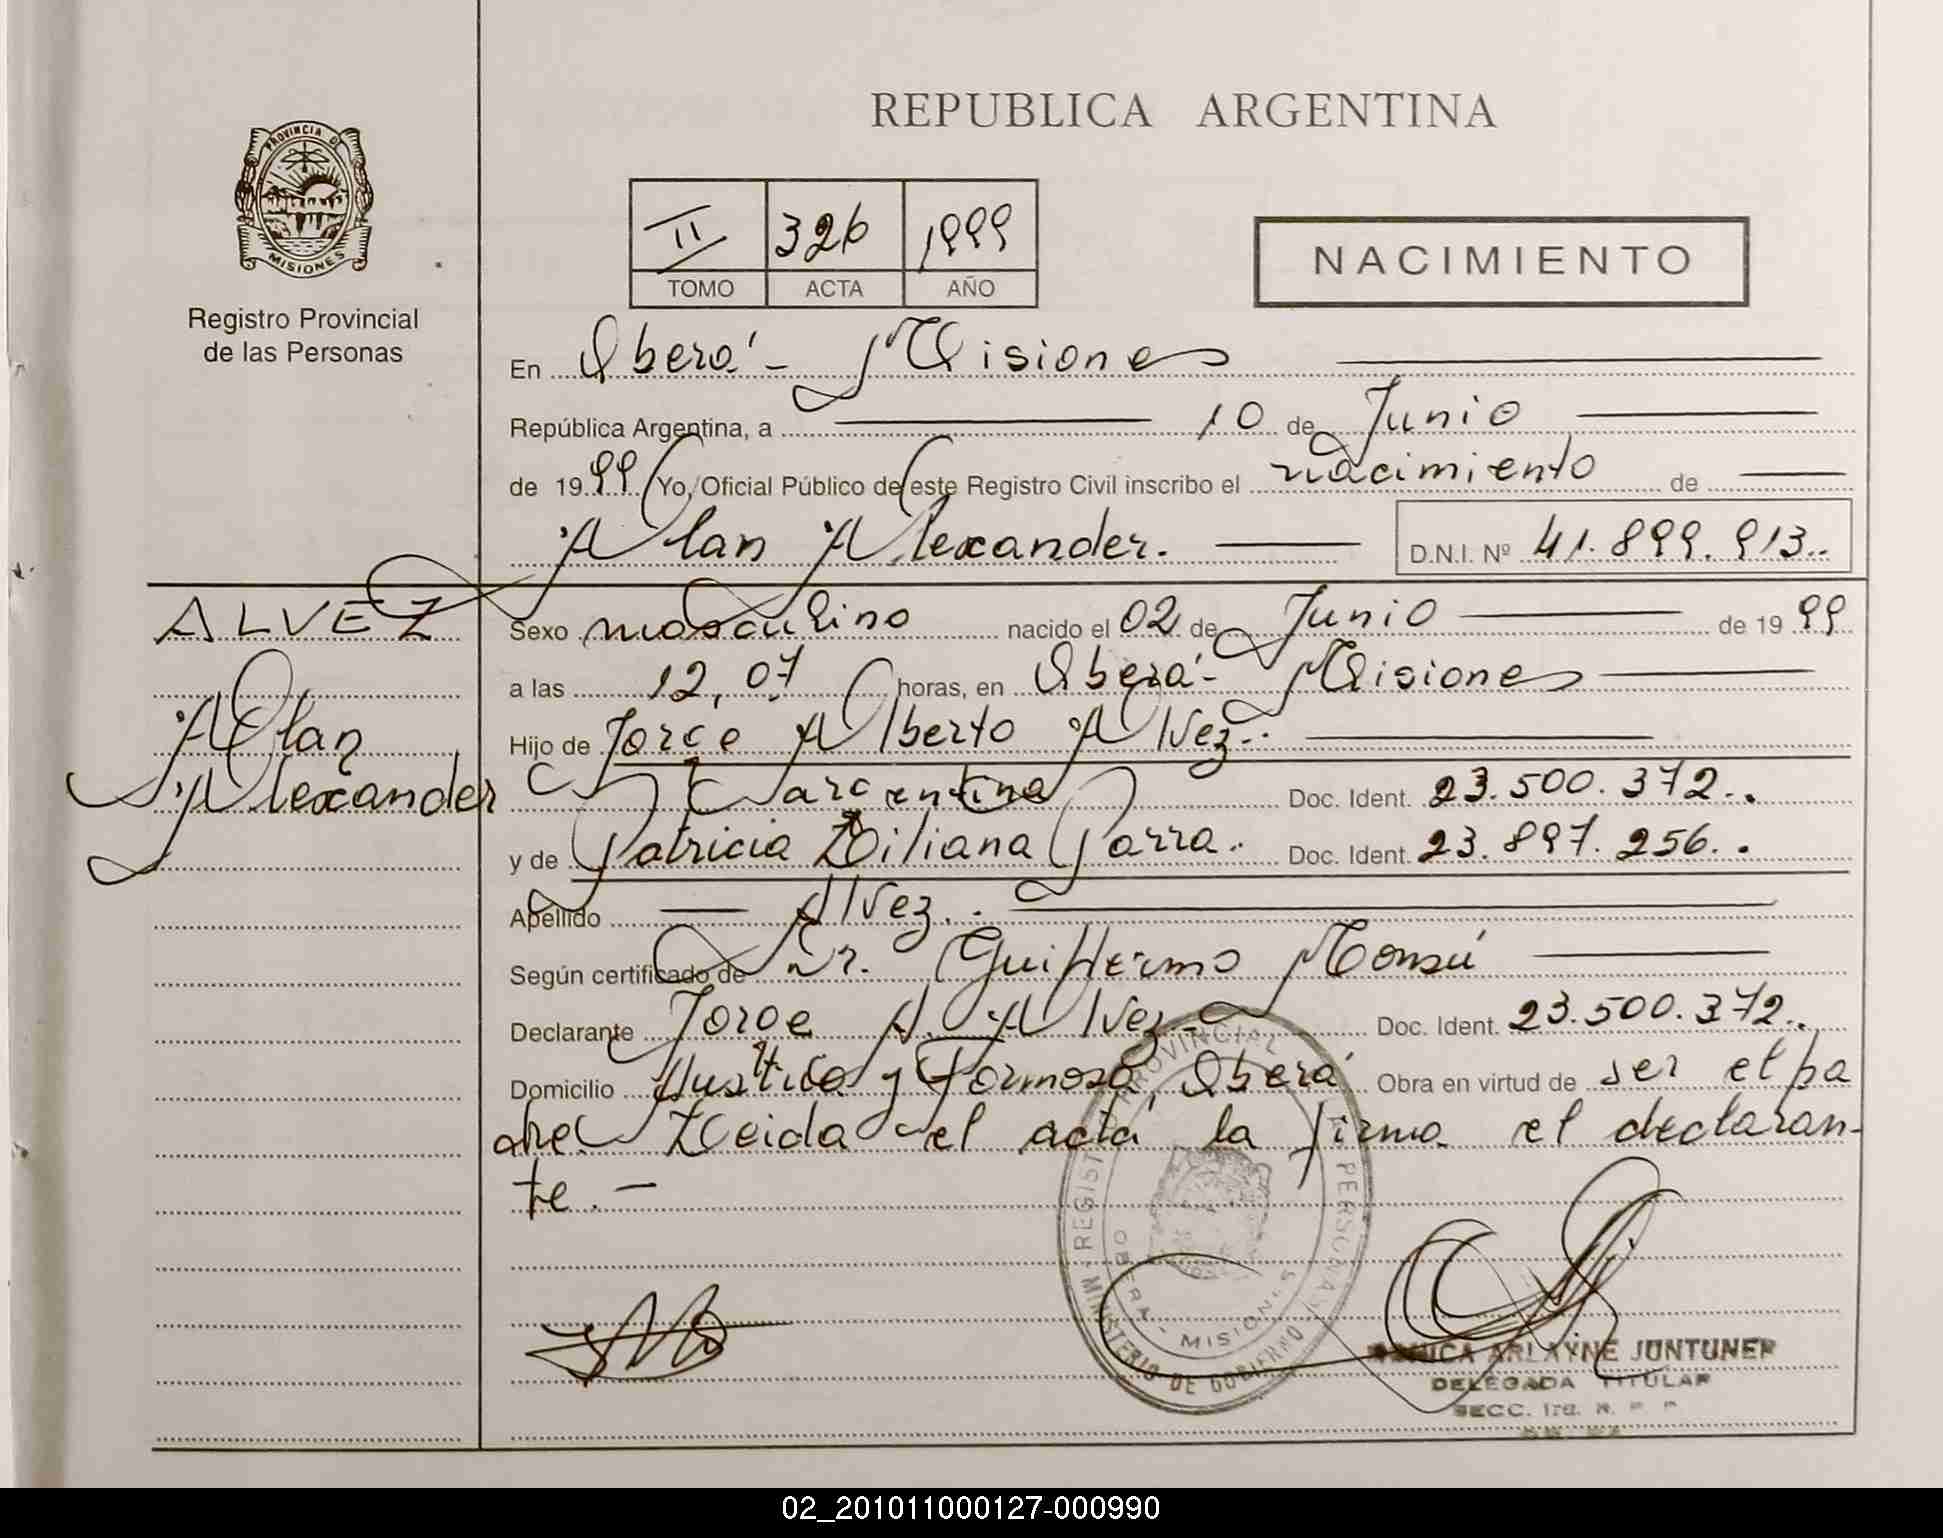 REPUBLICA ARGENTINA
PROVINCIA DE MISIONES
Registro Provincial
de las Personas
II 326 1999
TOMO ACTA AÑO
NACIMIENTO
En Oberá - Misiones
República Argentina, a 10 de Junio
de 1999 Yo, Oficial Público de este Registro Civil inscribo el nacimiento de
Alan Alexander. D.N.I. Nº 41.899.913..
ALVEZ
Alan
Alexander
Sexo masculino nacido el 02 de Junio de 1999
a las 12,07 horas, en Oberá - Misiones
Hijo de Jorge Alberto Alvez..
argentina Doc. Ident. 23.500.372..
y de Patricia Liliana Parra. Doc. Ident. 23.897.256..
Apellido Alvez..
Según certificado de Dr. Guillermo Monsú
Declarante Jorge A. Alvez Doc. Ident. 23.500.372..
Domicilio y Formosa, Oberá Obra en virtud de ser el pa
dre. Leida el acta la firma el declaran-
te.-
REGISTRO PROVINCIAL DE LAS PERSONAS
OBERA - MISIONES
MINISTERIO DE GOBIERNO
ARLAYNE JUNTUNEN
DELEGADA TITULAR
SECC. 1ra. R. P. P.
02_201011000127-000990